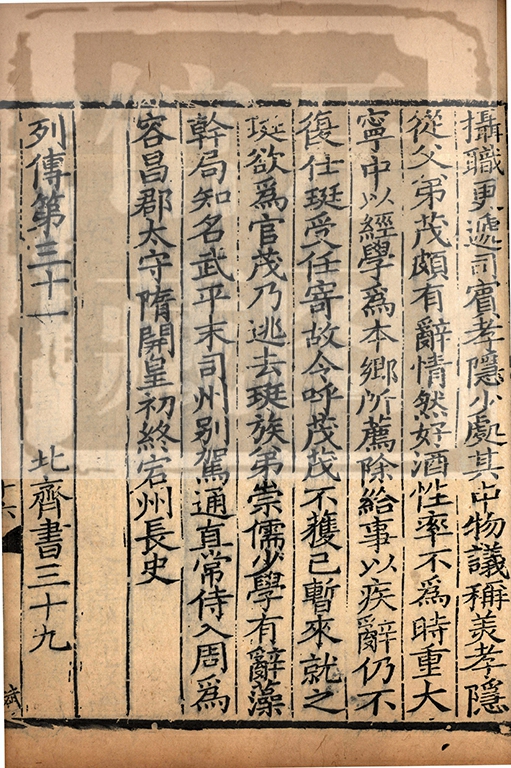 攝職更遞司賓孝隱少處其中物議稱美孝隱
從父弟茂頗有辭情然好酒性率不爲時重大
寧中以經學爲本鄉所薦除給事以疾辭仍不
復仕珽受任寄故令呼茂茂不獲已暫來就之
珽欲爲官茂乃逃去珽族弟崇儒少學有辭藻
幹局知名武平末司州別駕通直常侍入周爲
容昌郡太守隋開皇初終宕州長史
列傳第三十一 北齊書三十九